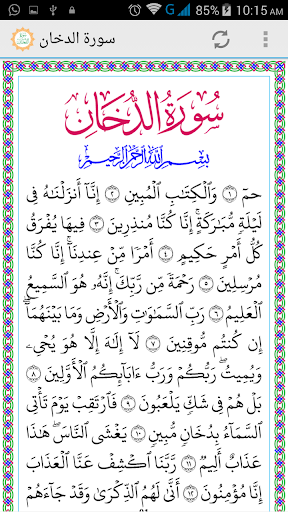 85% 10:15 AM
سورة الدخان
سُورَةُ الدُّخَانِ
بِسْمِ ٱللَّهِ ٱلرَّحْمَٰنِ ٱلرَّحِيمِ
حمٓ ١ وَٱلْكِتَٰبِ ٱلْمُبِينِ ٢ إِنَّآ أَنزَلْنَٰهُ فِى
لَيْلَةٍ مُّبَٰرَكَةٍ ۚ إِنَّا كُنَّا مُنذِرِينَ ٣ فِيهَا يُفْرَقُ
كُلُّ أَمْرٍ حَكِيمٍ ٤ أَمْرًا مِّنْ عِندِنَآ ۚ إِنَّا كُنَّا
مُرْسِلِينَ ٥ رَحْمَةً مِّن رَّبِّكَ ۚ إِنَّهُۥ هُوَ ٱلسَّمِيعُ
ٱلْعَلِيمُ ٦ رَبِّ ٱلسَّمَٰوَٰتِ وَٱلْأَرْضِ وَمَا بَيْنَهُمَآ ۖ
إِن كُنتُم مُّوقِنِينَ ٧ لَآ إِلَٰهَ إِلَّا هُوَ يُحْىِۦ
وَيُمِيتُ ۖ رَبُّكُمْ وَرَبُّ ءَابَآئِكُمُ ٱلْأَوَّلِينَ ٨
بَلْ هُمْ فِى شَكٍّ يَلْعَبُونَ ٩ فَٱرْتَقِبْ يَوْمَ تَأْتِى
ٱلسَّمَآءُ بِدُخَانٍ مُّبِينٍ ١٠ يَغْشَى ٱلنَّاسَ ۖ هَٰذَا
عَذَابٌ أَلِيمٌ ١١ رَّبَّنَا ٱكْشِفْ عَنَّا ٱلْعَذَابَ
إِنَّا مُؤْمِنُونَ ١٢ أَنَّىٰ لَهُمُ ٱلذِّكْرَىٰ وَقَدْ جَآءَهُمْ